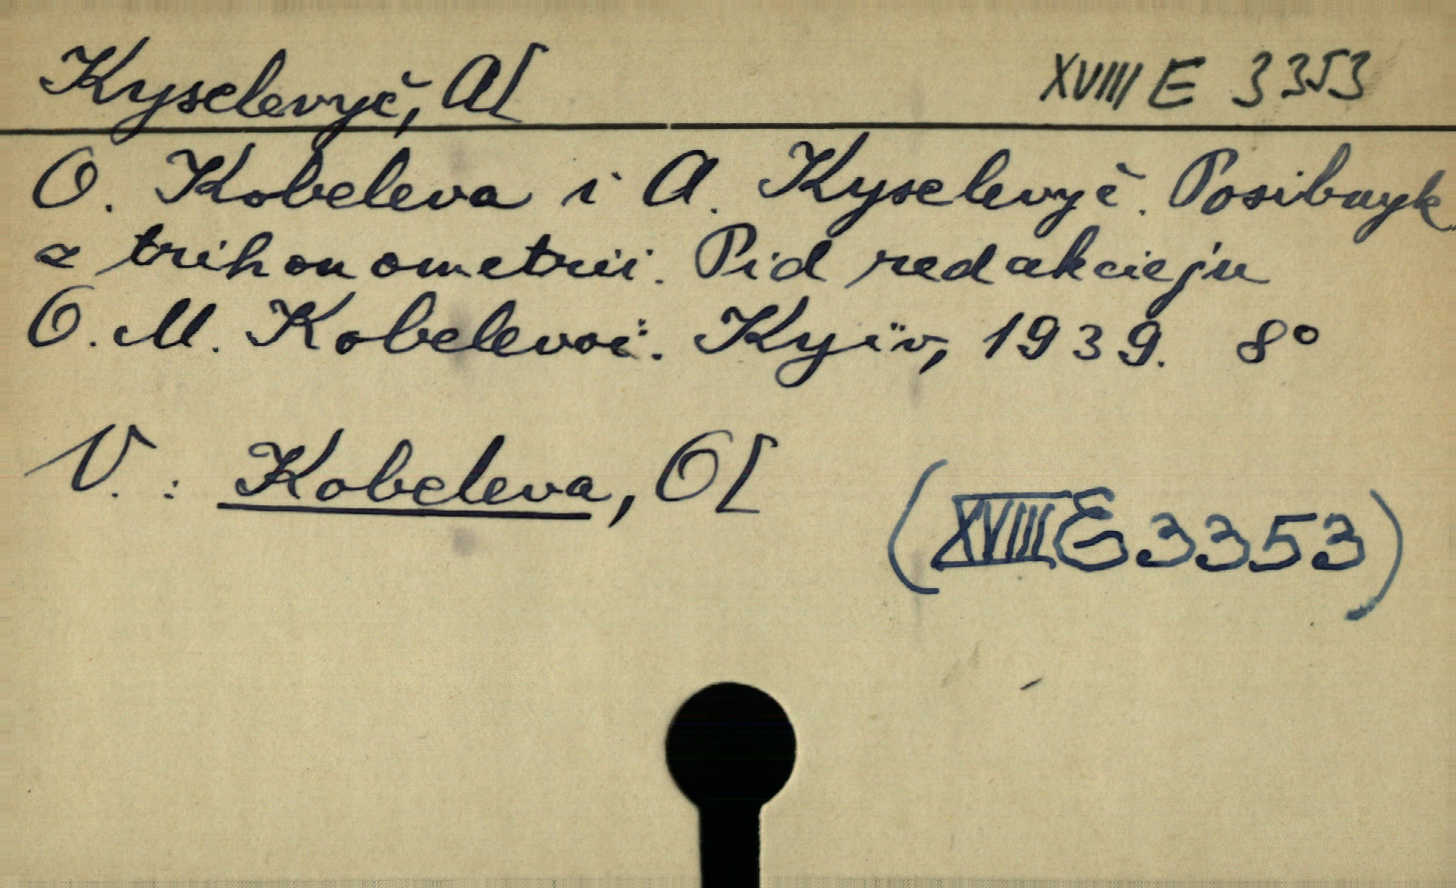 Kyselevyč, A[
XVIII E 3353
O. Kobeleva i A. Kyselevyč. Posibnyk
z trihonometrii. Pid redakcieju
O. M. Kobelevoï. Kyïv, 1939. 8°
V. : Kobeleva, O[
(XVIII E 3353)